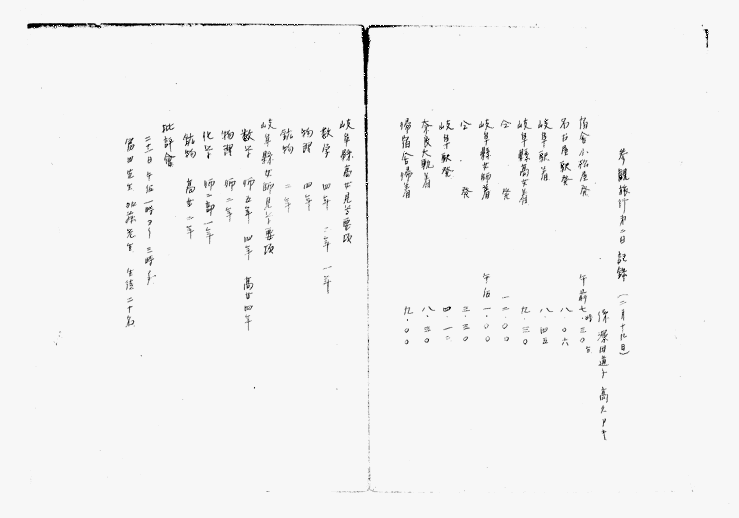 参観旅行第二日 記録 (二月十九日)
係 深田道子 高久アキ
宿舎小松屋発 午前七時三〇分
名古屋駅発 八・〇六
岐阜駅着 八・四五
岐阜縣高女着 九・三〇
仝 発 一二・〇〇
岐阜縣女師着 午后一・〇〇
仝 発 三・三〇
岐阜駅発 四・一〇
奈良大軌着 八・三〇
帰宿舎帰着 九・〇〇
岐阜縣高女見学要項
数学 四年 二年 一年
物理 四年
鉱物 二年
岐阜縣女師見学要項
数学 師五年 四年 高女四年
物理 師二年
化学 師二部一年
鉱物 高女二年
批評会
二十一日午后一時ヨリ三時マデ
富田先生 先生 生徒二十名